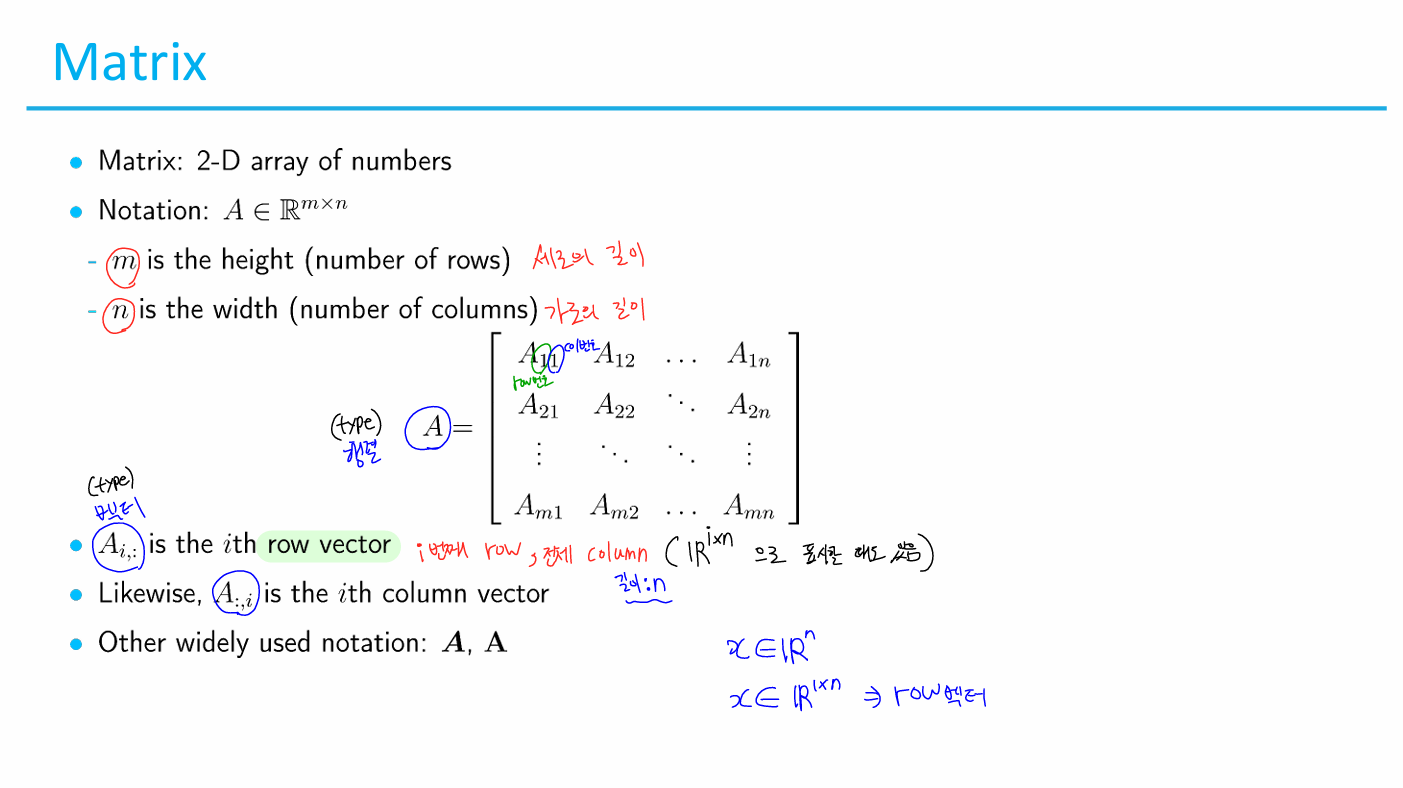 Matrix
• Matrix: 2-D array of numbers
• Notation: A ∈ ℝ^{m×n}
- m is the height (number of rows) 세로의 길이
- n is the width (number of columns) 가로의 길이
A_{11} col번호 A_{12} … A_{1n}
row번호
A_{21} A_{22} ⋱ A_{2n}
(type) A =
행렬
⋮ ⋱ ⋱ ⋮
A_{m1} A_{m2} … A_{mn}
(type)
벡터
• A_{i,:} is the ith row vector i번째 row, 전체 column (ℝ^{1×n} 으로 표시할 때도 있음)
길이:n
• Likewise, A_{:,i} is the ith column vector
• Other widely used notation: 𝑨, 𝐀
x ∈ ℝ^n
x ∈ ℝ^{1×n} ⇒ row벡터